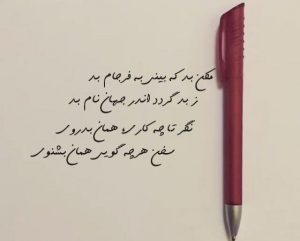 مکن بد که بینی به فرجام بد
ز بد گردد اندر جهان نام بد
نگر تا چه کاری، همان بدروی
سخن هرچه گویی همان بشنوی